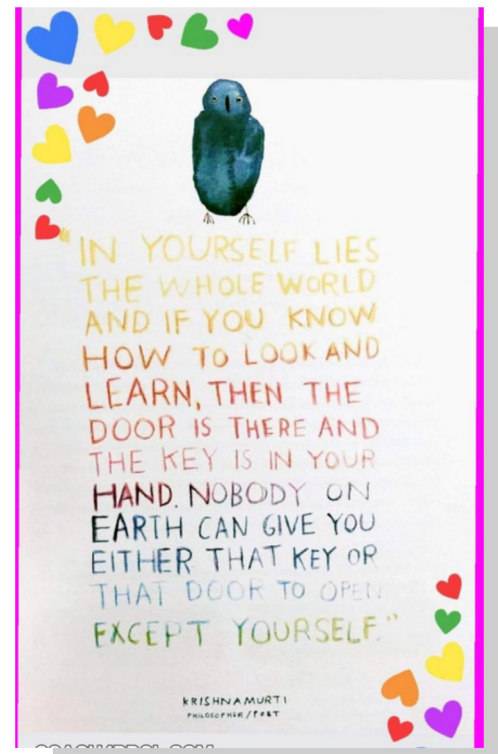 "IN YOURSELF LIES
THE WHOLE WORLD
AND IF YOU KNOW
HOW TO LOOK AND
LEARN, THEN THE
DOOR IS THERE AND
THE KEY IS IN YOUR
HAND. NOBODY ON
EARTH CAN GIVE YOU
EITHER THAT KEY OR
THAT DOOR TO OPEN
EXCEPT YOURSELF."
KRISHNAMURTI
PHILOSOPHER/POET